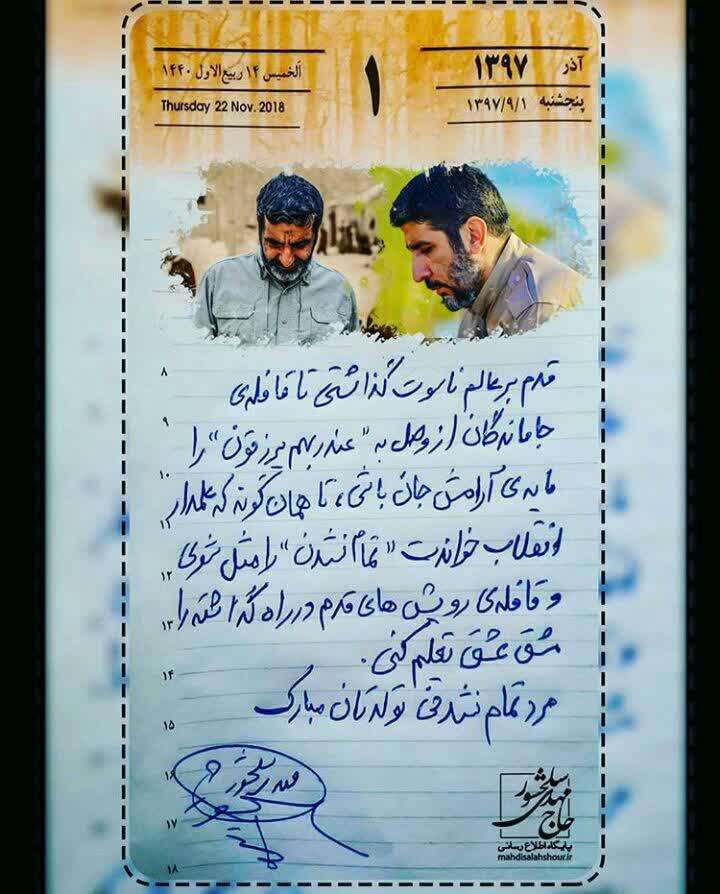 آذر ۱۳۹۷
پنجشنبه ۱۳۹۷/۹/۱
۱
اَلخمیس ۱۴ ربیع‌الاول ۱۴۴۰
Thursday 22 Nov. 2018
۸
قدم بر عالم ناسوت گذاشتی تا قافله‌ی
۹
جاماندگان از وصل به "عند ربهم یرزقون" را
۱۰
مایه‌ی آرامش جان باشی، تا همان گونه که علمدار
۱۱
انقلاب خواندت "تمام نشدن" را مثل شوی
۱۲
و قافله‌ی رویش های قدم در راه گذاشته را
۱۳
مشق عشق تعلیم کنی.
۱۴
مرد تمام نشدنی تولدتان مبارک
۱۵
۱۶
مهدی سلحشور
۱۷
۱۸
حاج مهدی سلحشور
پایگاه اطلاع رسانی
mahdisalahshour.ir